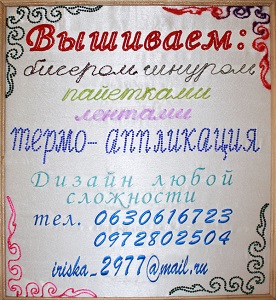 Вышиваем:
бисером шнуром
пайетками
лентами
термо-аппликация
Дизайн любой
сложности
тел. 0630616723
0972802504
iriska_2977@mail.ru